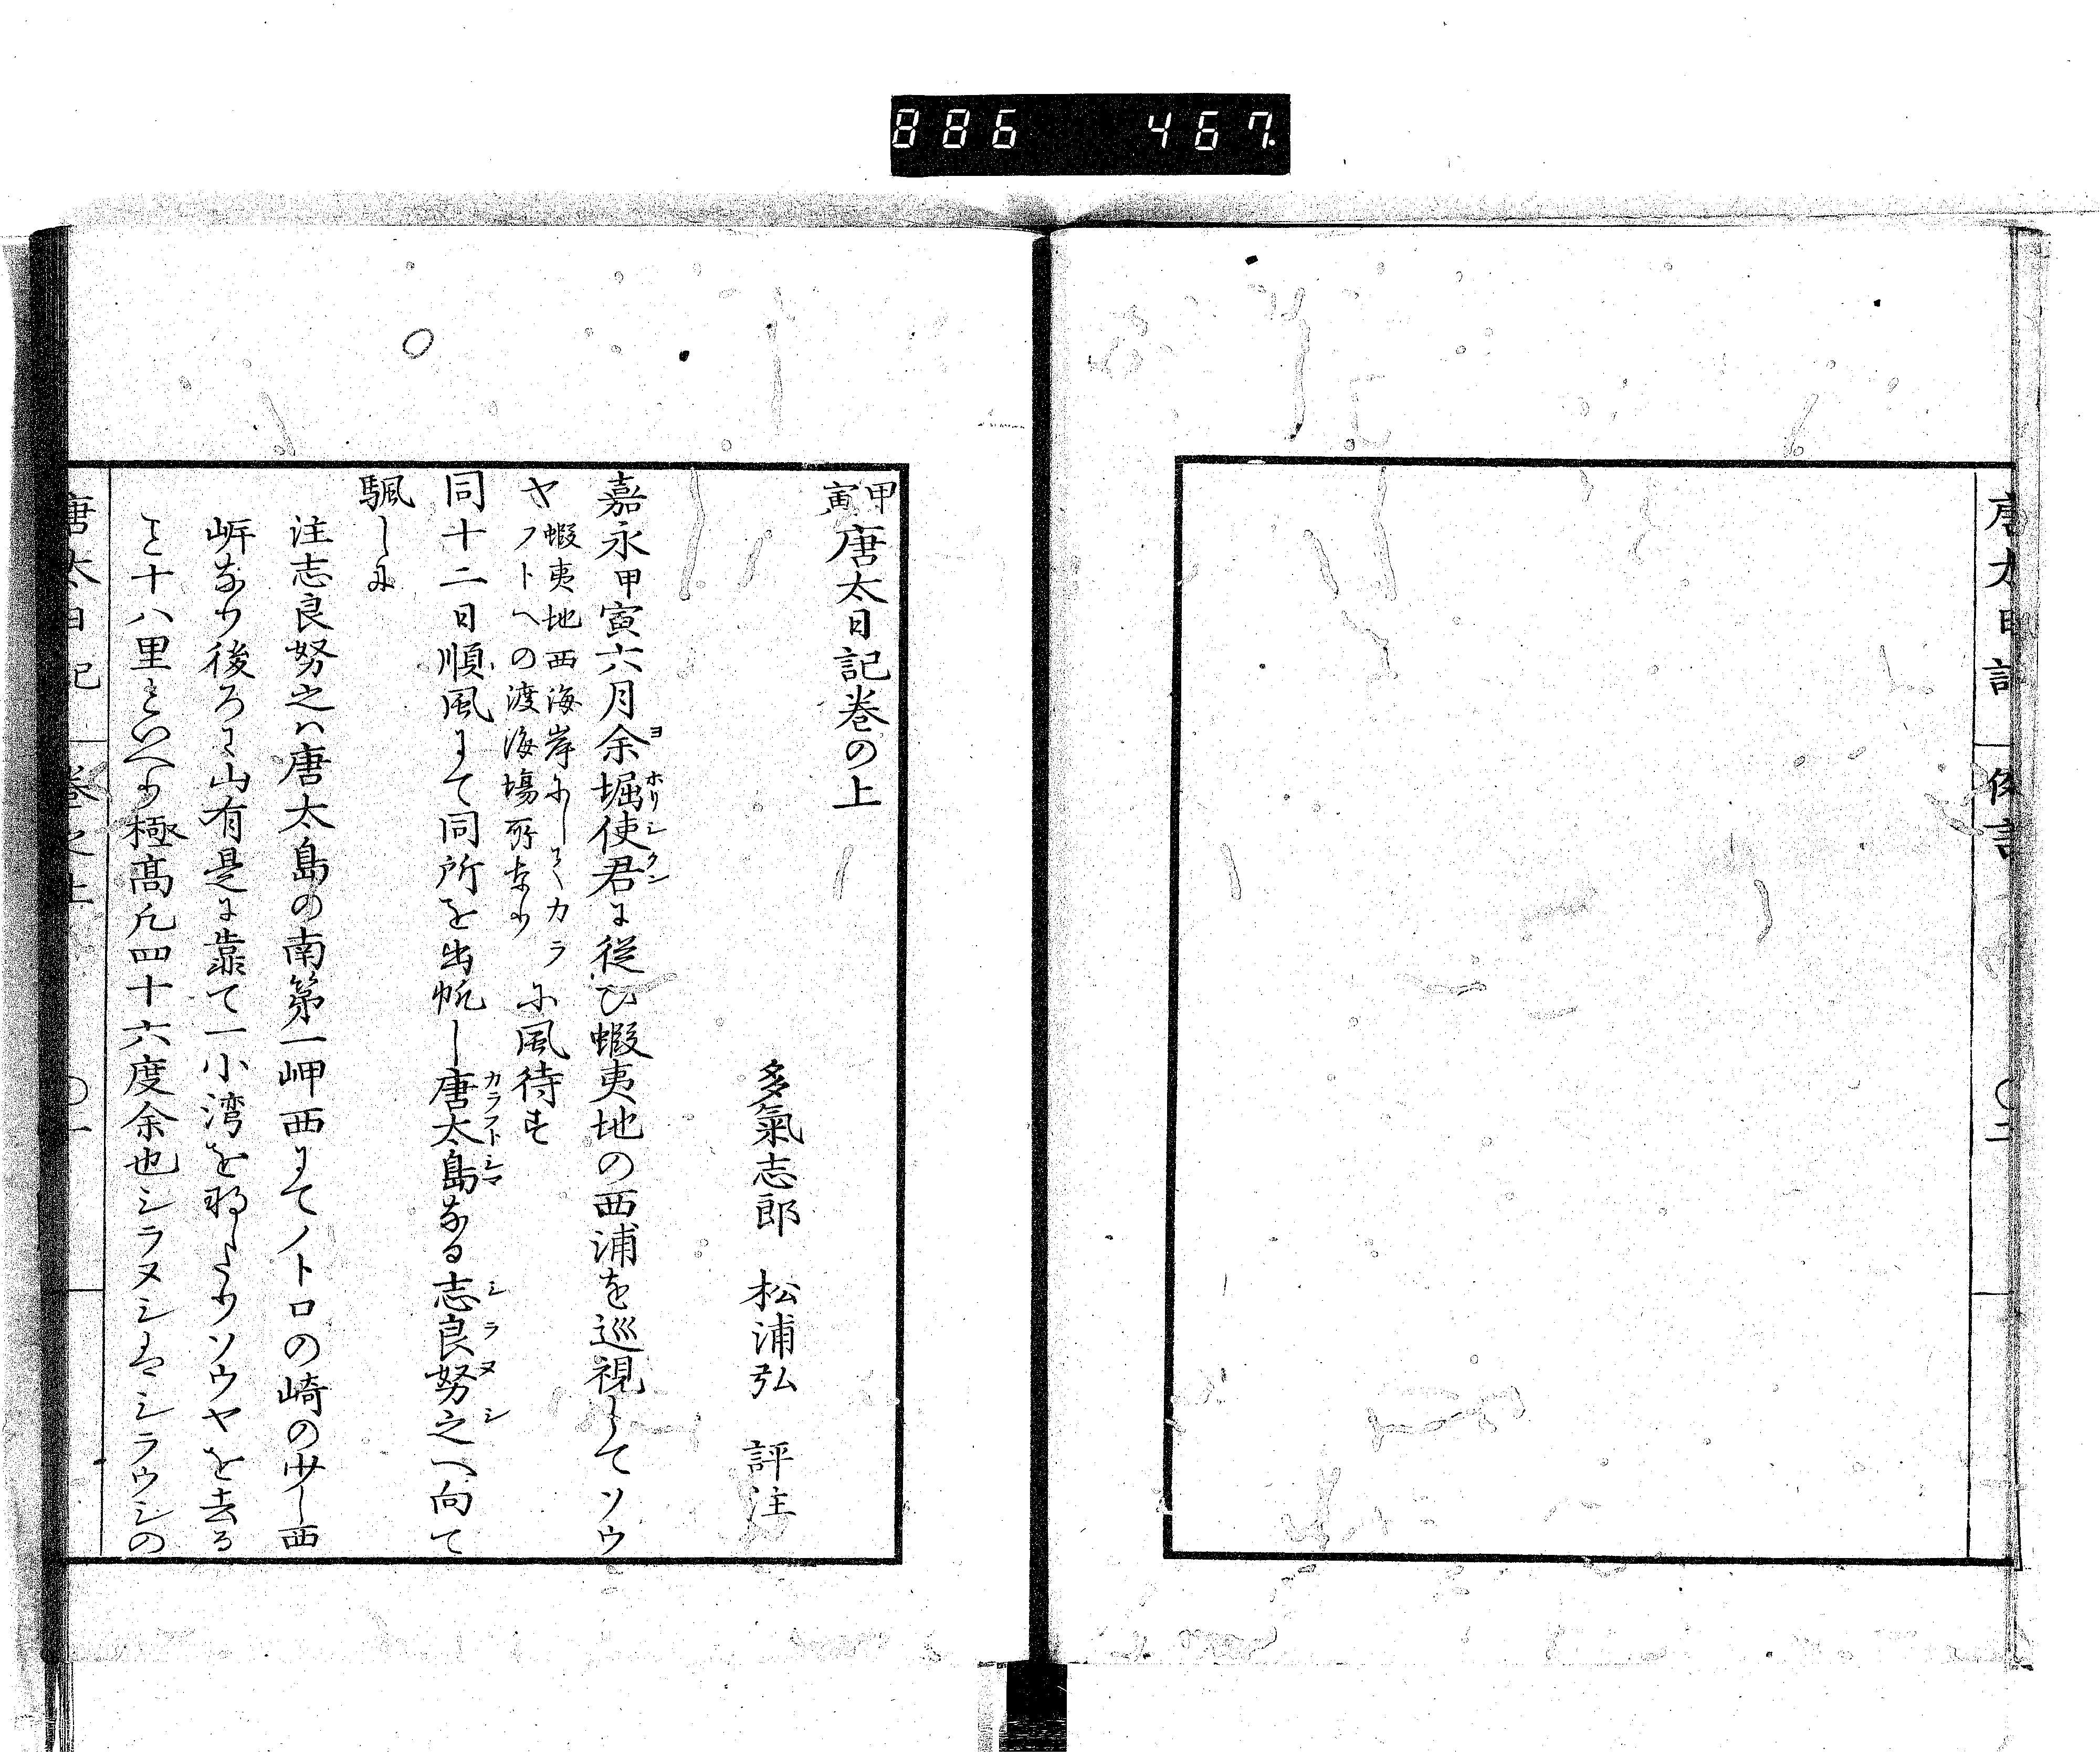 886 467.
唐太日記
後言
〇二
甲寅 唐太日記巻の上
多氣志郎 松浦弘 評注
嘉永甲寅六月余堀使君に従ひ蝦夷地の西浦を巡視してソウ
ヨ ホリ シクン
ヤ 蝦夷地西海岸にしてカラ
フトヘの渡海場所なり に風待す
同十二日順風にて同所を出帆し唐太島なる志良努之へ向て
カラフトシマ シラヌシ
颿しに
注志良努之ハ唐太島の南第一岬西にてノトロの崎の少し西
岍なり後ろに山有是に靠て一小湾を
たりソウヤを去る
こと十八里といへり極高凡四十六度余也シラヌシはシラウシの
唐太日記
巻之上
〇一